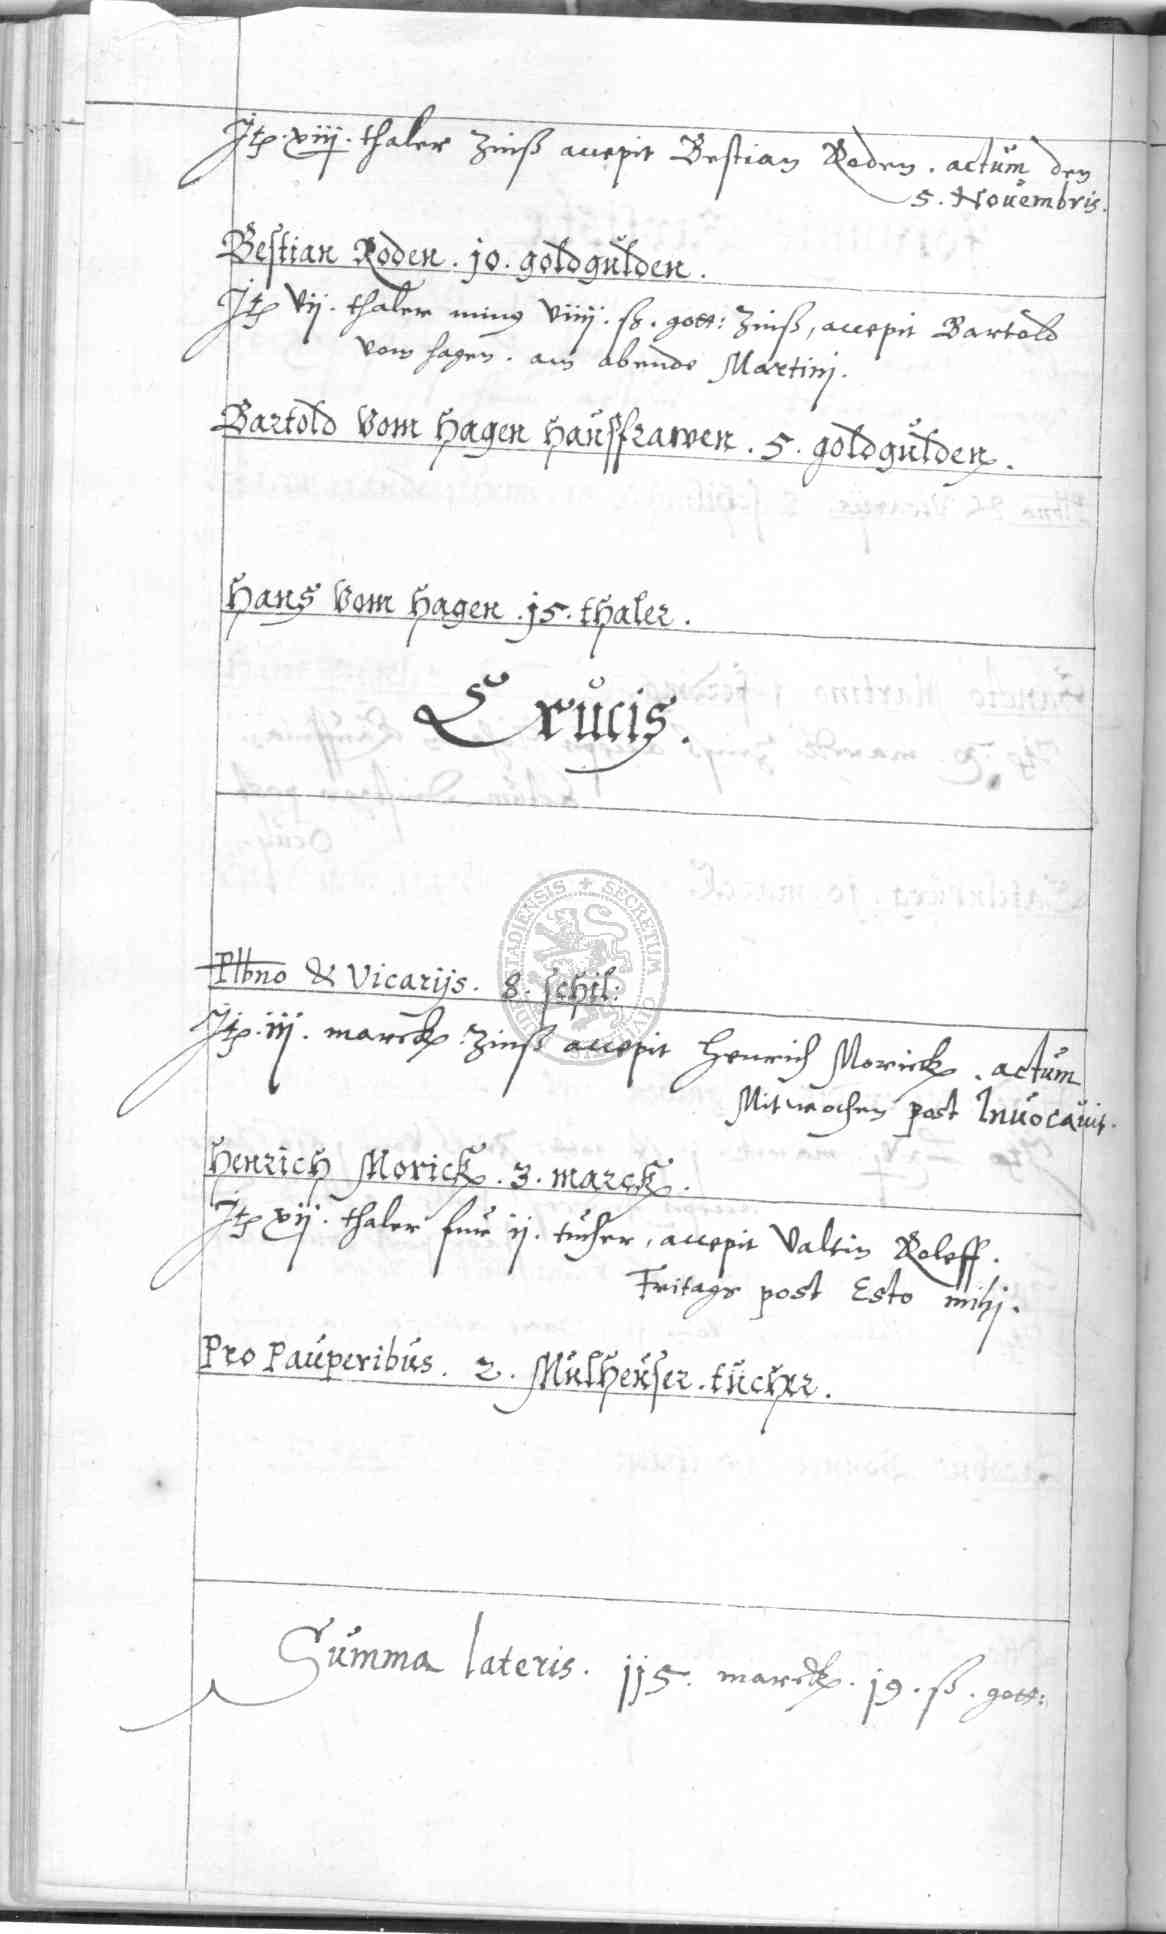 Itꝫ. xiij. thaler Zinß accepit Bestian Roden. actum den
5. Novembris.
Bestian Roden. jo. goldgulden.
Itꝫ vij. thaler minꝰ viiij. ß. gott: Zinß, accepit Bartold
vom hagen. am abende Martinj.
Bartold Vom Hagen Haussfrawen. 5. goldgulden.
Hans Vom Hagen. j5. thaler.
Crucis.
Plbno & Vicarijs. 8. schil:
Itꝫ. iij. marck Zinß accepit Henrich Morick. actum
Mitwochen post Invocavit.
Henrich Morick. 3. marck.
Itꝫ xij. thaler fur ij. tucher, accepit Valtin Roleff.
Fritags post Esto mihj.
Pro Pauperibus. 2. Mulheuser. tucher.
Summa lateris. jj5. marck. j9. ß. gott:
SECRETUM CIVI